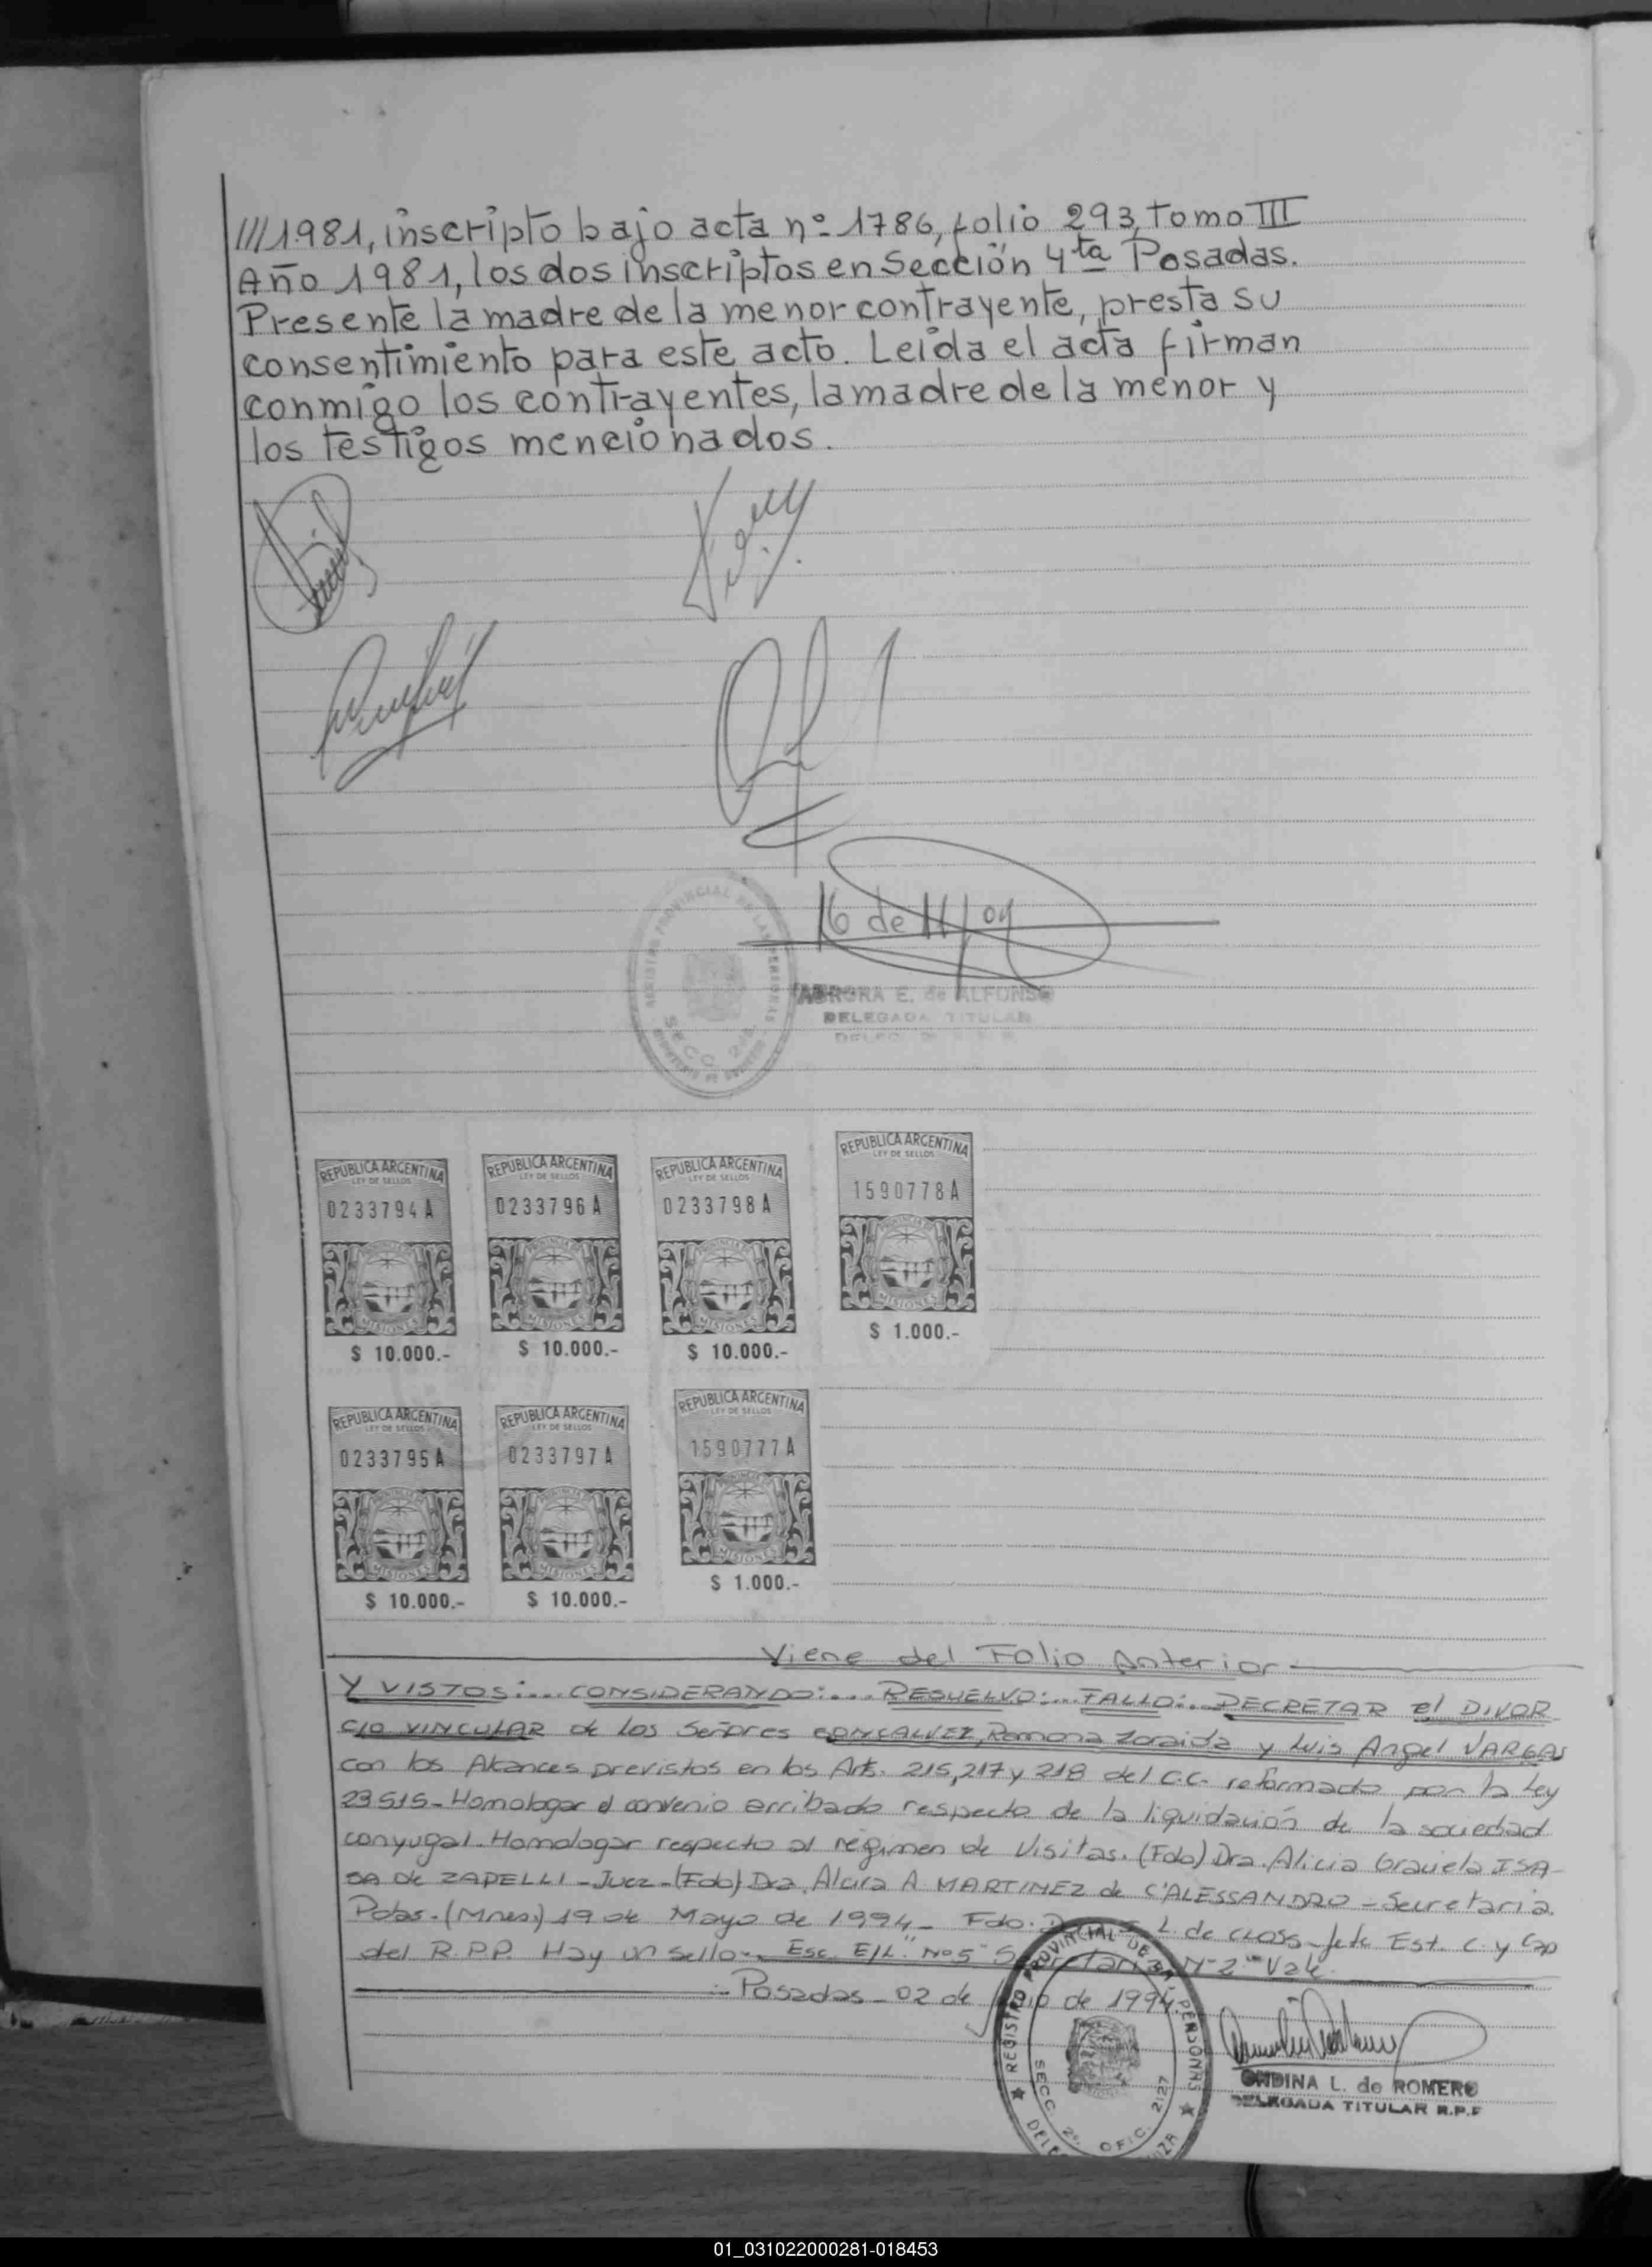 ///1981, inscripto bajo acta nº 1786, folio 293, tomo III
Año 1981, los dos inscriptos en Sección 4ta Posadas.
Presente la madre de la menor contrayente, presta su
consentimiento para este acto. Leída el acta firman
conmigo los contrayentes, la madre de la menor y
los testigos mencionados.
16 de 11/09
REGISTRO PROVINCIAL DE LAS PERSONAS
SECC. 2da.
AURORA E. de ALFONSO
DELEGADA TITULAR
REPUBLICA ARGENTINA REPUBLICA ARGENTINA REPUBLICA ARGENTINA REPUBLICA ARGENTINA
LEY DE SELLOS LEY DE SELLOS LEY DE SELLOS LEY DE SELLOS
0233794 A 0233796 A 0233798 A 1590778 A
PROVINCIA DE PROVINCIA DE PROVINCIA DE PROVINCIA DE
MISIONES MISIONES MISIONES MISIONES
$ 10.000.- $ 10.000.- $ 10.000.- $ 1.000.-
REPUBLICA ARGENTINA REPUBLICA ARGENTINA REPUBLICA ARGENTINA
LEY DE SELLOS LEY DE SELLOS LEY DE SELLOS
0233795 A 0233797 A 1590777 A
PROVINCIA DE PROVINCIA DE PROVINCIA DE
MISIONES MISIONES MISIONES
$ 10.000.- $ 10.000.- $ 1.000.-
Viene del Folio Anterior
Y VISTOS:... CONSIDERANDO:... RESUELVO:... FALLO:.. DECRETAR el DIVOR
CIO VINCULAR de los Señores GONCALVEZ, Ramona Zoraida y Luis Angel VARGAS
con los Alcances previstos en los Arts. 215, 217 y 218 del C.C. reformado por la Ley
23515 - Homologar el convenio arribado respecto de la liquidación de la sociedad
conyugal - Homologar respecto al régimen de Visitas. (Fdo) Dra. Alicia Graciela ISA-
SA de ZAPELLI - Juez - (Fdo) Dra. Alcira A MARTINEZ de C'ALESSANDRO - Secretaria.
Pdas. (Mnes.) 19 de Mayo de 1994 - Fdo. L. de CLOSS - Jefe Est. C. y Cap
del R.P.P. Hay un sello Esc. E/L. "Nº 5" Secretaria Nº 2 " Vale.
Posadas - 02 de Junio de 1994.
REGISTRO PROVINCIAL DE LAS PERSONAS
SECC. 2ª. OFIC. 2127
ONDINA L. de ROMERO
DELEGADA TITULAR R.P.P
01_031022000281-018453